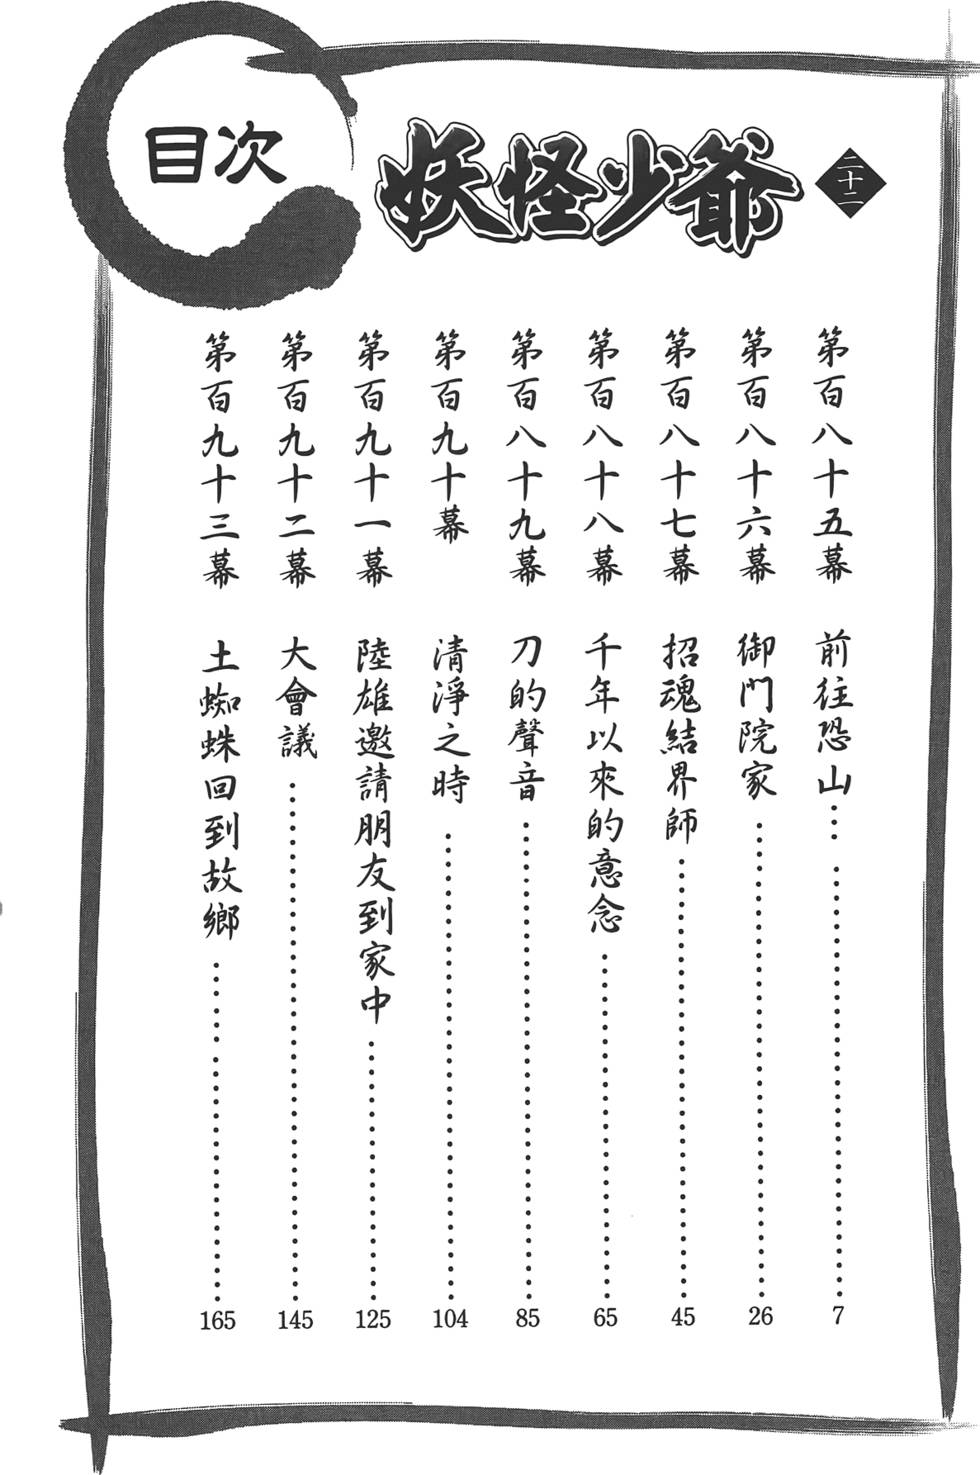 目次
妖怪少爺
二十二
第百八十五幕 前往恐山………7
第百八十六幕 御門院家………26
第百八十七幕 招魂結界師………45
第百八十八幕 千年以來的意念………65
第百八十九幕 刀的聲音………85
第百九十幕 清淨之時………104
第百九十一幕 陸雄邀請朋友到家中………125
第百九十二幕 大會議………145
第百九十三幕 土蜘蛛回到故鄉………165